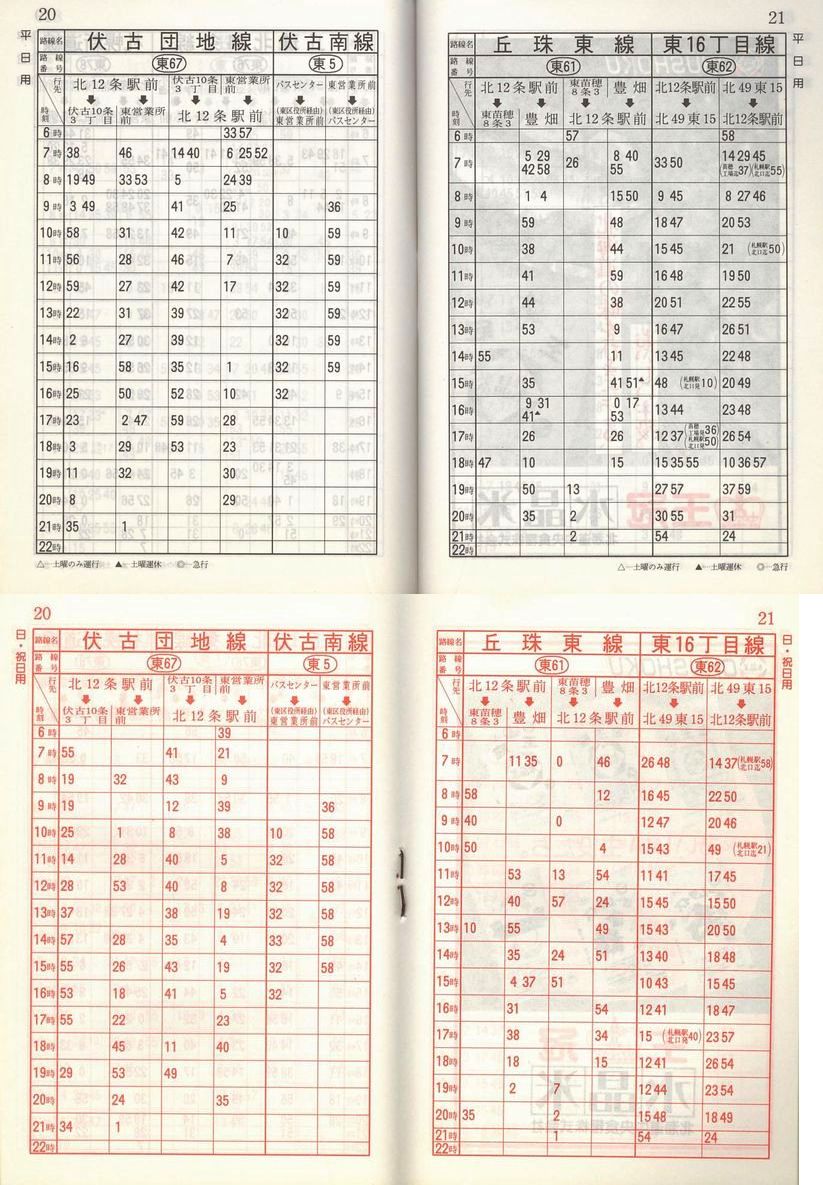 20
平日用
路線名 伏古団地線 伏古南線
路線番号 東67 東5
行先 時刻 北12条駅前 伏古10条3丁目 東営業所前 バスセンター 東営業所前
伏古10条3丁目 東営業所前 北12条駅前 (東区役所経由)東営業所前 (東区役所経由)バスセンター
6時 33 57
7時 38 46 14 40 6 25 52
8時 19 49 33 53 5 24 39
9時 3 49 41 25 36
10時 58 31 42 11 10 59
11時 56 28 46 7 32 59
12時 59 27 42 17 32 59
13時 22 31 39 27 32 59
14時 2 27 39 32 59
15時 16 58 35 1 32 59
16時 25 50 52 10 32
17時 23 2 47 59 28
18時 3 29 53 23
19時 11 32 30
20時 8 29
21時 35 1
22時
△…土曜のみ運行 ▲…土曜運休 ◎…急行
21
平日用
路線名 丘珠東線 東16丁目線
路線番号 東61 東62
行先 時刻 北12条駅前 東苗穂8条3 豊畑 北12条駅前 北49東15
東苗穂8条3 豊畑 北12条駅前 北49東15 北12条駅前
6時 57 58
7時 5 29 42 58 26 8 40 55 33 50 14 29 45 (苗穂工場迄37) (札幌駅北口迄55)
8時 1 4 15 50 9 45 8 27 46
9時 59 48 18 47 20 53
10時 38 44 15 45 21 (札幌駅北口迄50)
11時 41 59 16 48 19 50
12時 44 38 20 51 22 55
13時 53 9 16 47 26 51
14時 55 11 13 45 22 48
15時 35 41 51▲ 48 (札幌駅北口発10) 20 49
16時 9 31 41▲ 0 17 53 13 44 23 48
17時 26 26 12 37 (苗穂工場発36 札幌駅北口発50) 26 54
18時 47 10 15 15 35 55 10 36 57
19時 50 13 27 57 37 59
20時 35 2 30 55 31
21時 2 54 24
22時
△…土曜のみ運行 ▲…土曜運休 ◎…急行
20
日・祝日用
路線名 伏古団地線 伏古南線
路線番号 東67 東5
行先 時刻 北12条駅前 伏古10条3丁目 東営業所前 バスセンター 東営業所前
伏古10条3丁目 東営業所前 北12条駅前 (東区役所経由)東営業所前 (東区役所経由)バスセンター
6時 39
7時 55 41 21
8時 19 32 43 9
9時 19 12 39 36
10時 25 1 8 38 10 58
11時 14 28 40 5 32 58
12時 28 53 40 8 32 58
13時 37 38 19 32 58
14時 57 28 35 4 33 58
15時 55 26 43 19 32 58
16時 53 18 41 5 32
17時 55 22 23
18時 45 11 40
19時 29 53 49
20時 24 35
21時 34 1
22時
21
日・祝日用
路線名 丘珠東線 東16丁目線
路線番号 東61 東62
行先 時刻 北12条駅前 東苗穂8条3 豊畑 北12条駅前 北49東15
東苗穂8条3 豊畑 北12条駅前 北49東15 北12条駅前
6時
7時 11 35 0 46 26 48 14 37 (札幌駅北口迄58)
8時 58 12 16 45 22 50
9時 40 0 12 47 20 46
10時 50 4 15 43 49 (札幌駅北口迄21)
11時 53 13 54 11 41 17 45
12時 40 57 24 15 45 15 50
13時 10 55 49 15 43 20 50
14時 35 24 51 13 40 18 48
15時 4 37 51 10 43 15 45
16時 31 54 12 41 18 47
17時 38 34 15 (札幌駅北口発40) 23 57
18時 18 15 12 41 26 54
19時 2 7 12 44 23 54
20時 35 2 15 48 18 49
21時 1 54 24
22時